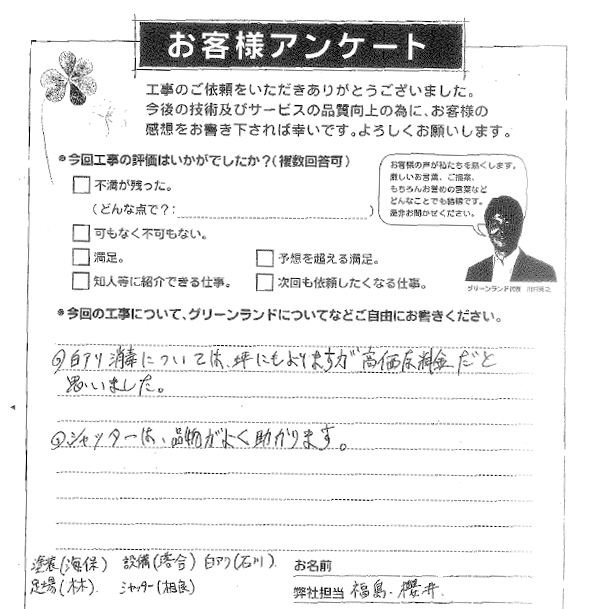 お客様アンケート
工事のご依頼をいただきありがとうございました。
今後の技術及びサービスの品質向上の為に、お客様の
感想をお書き下されば幸いです。よろしくお願いします。
※今回工事の評価はいかがでしたか？（複数回答可）
不満が残った。
（どんな点で？：　　　　　）
可もなく不可もない。
満足。
予想を超える満足。
知人等に紹介できる仕事。
次回も依頼したくなる仕事。
お客様の声が私たちを熱くします。
厳しいお言葉、ご提案、
もちろんお誉めの言葉など
どんなことでも結構です。
是非お聞かせください。
グリーンランド代表
※今回の工事について、グリーンランドについてなどご自由にお書きください。
白アリ消毒については、坪にもよりますが高価な料金だと
思いました。
シャッターは、品物がよく助かります。
塗装(海保) 設備(落合) 白アリ(石川)
足場(林) シャッター(相良)
お名前
弊社担当 福島・櫻井